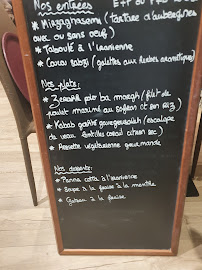 Nos entrées
* Mirzaghasemi (tartare d'aubergines
avec ou sans oeuf)
* Taboulé à l'iranienne
* Coco sabzi (galettes aux herbes aromatiques)
Nos plats:
* Zereshk polo ba morgh (filet de
poulet mariné au safran et son riz)
* Kebab gavourgavourdish (escalope
de veau citron sec)
* Assiette végétarienne gourmande
Nos desserts:
* Panna cotta à l'iranienne
* Soupe à la fraise à la menthe
* Gateau à la fraise